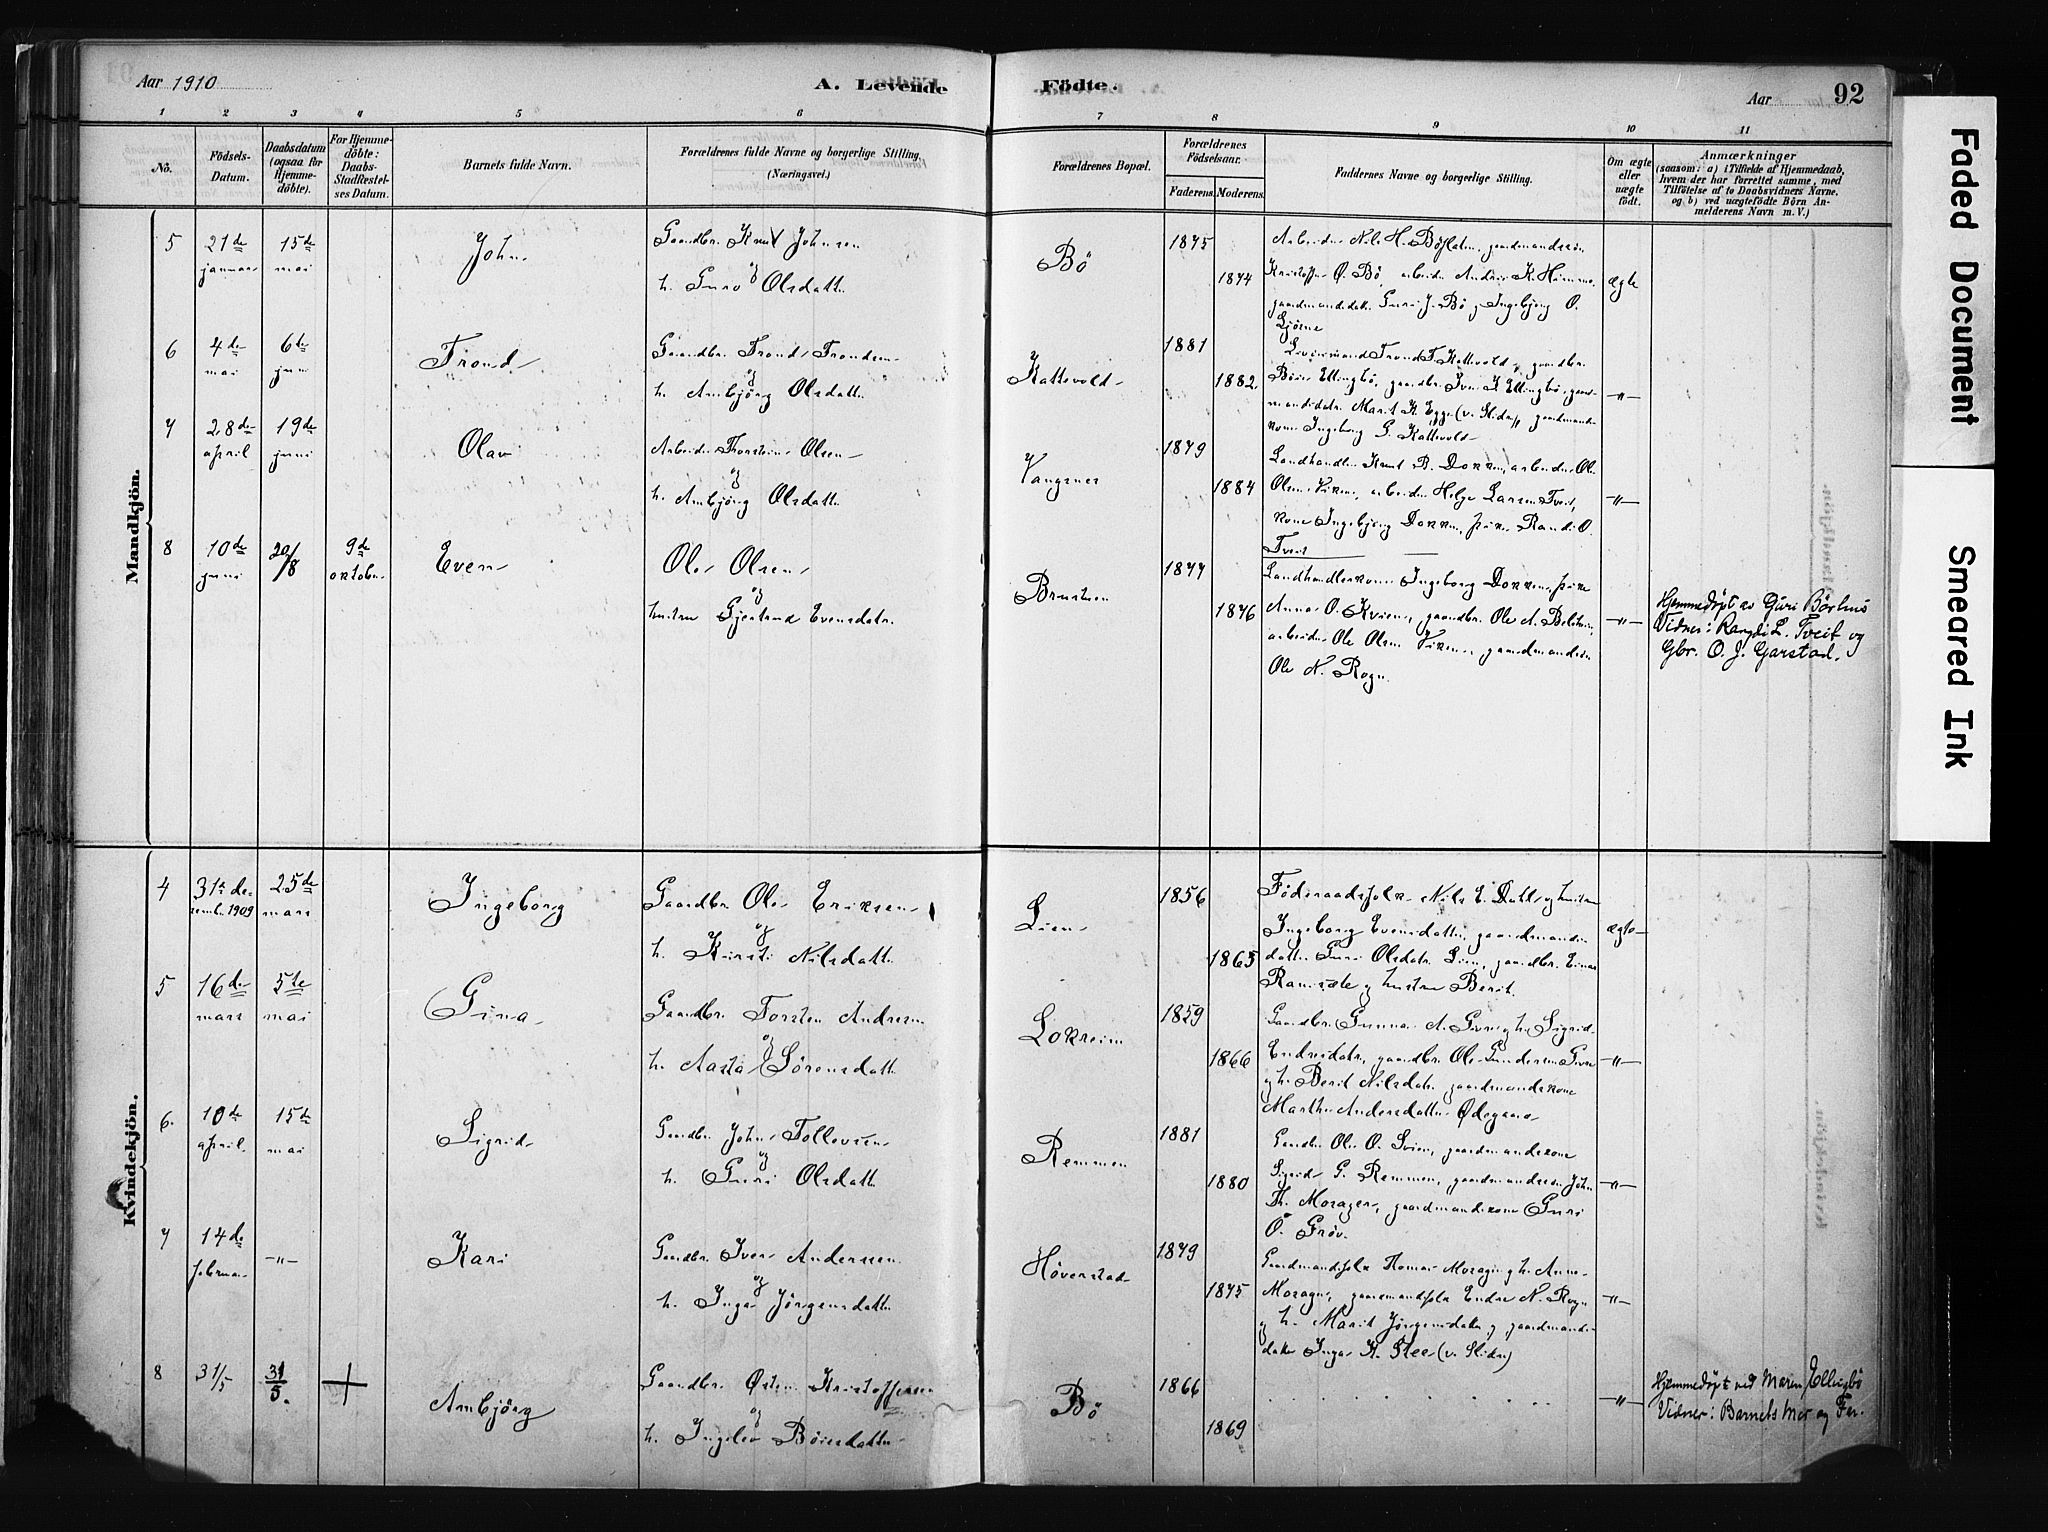 Aar 1910
A. Levende
Födte.
Aar
92
1 2 3 4 5 6 7 8 9 10 11
No.
Födsels-
Datum.
Daabsdatum
(ogsaa for
Hjemme-
döbte).
For Hjemme-
döbte:
Daabs-
Stadfæstel-
ses Datum.
Barnets fulde Navn.
Forældrenes fulde Navne og borgerlige Stilling.
(Næringsvei.)
Forældrenes Bopæl.
Forældrenes
Födselsaar.
Faderens. Moderens.
Faddernes Navne og borgerlige Stilling.
Om ægte
eller
uægte
födt.
Anmærkninger
(saasom: a) i Tilfælde af Hjemmedaab,
hvem der har forrettet samme, med
Tilföielse af to Daabsvidners Navne,
og b) ved uægtefödte Börn An-
melderens Navn m. V.)
Mandkjön.
5
21de
januar
15de
mai
John
Gaardbr. Knut Johnsen
og
h. Guro Olsdatter
Bö
1875
1874
Arbeider Nils H. Böflaten, gaardmandssøn
Kristoffer O. Bö, arbeider Andris K. Hemme,
gaardmandsdatter Guri J. Bö, Ingebjørg O.
ægte
6
4de
mai
6te
juni
Trond
Gaardbr. Trond Trondsen
og
h. Ambjörg Olsdatter
Kattevold
1881
1882
Trond T. Kattevold, gaardbr.
Ellingbø, gaardbr. Iver K. Ellingbø, gaard-
mandsdatr. Marit K. Egge (v. Slidre), gaardmands-
kone Ingeborg G. Kattevold
-"-
7
28de
april
19de
juni
Olav
Arbeider Thorstein Olsen
og
h. Ambjörg Olsdatter
Vangsnes
1879
1884
Landhandler Knut B. Dokken, arbeider Ole
Olsen Viken, arbeider Helge Larsen Tveit,
kone Ingebjørg Dokken, pike Randi O.
Tveit
-"-
8
10de
juni
20/8
9de
oktober
Even
Ole Olsen
og
hustru Gjertrud Evensdatr.
Brusteen
1877
1876
Landhandlerkone Ingeborg Dokken, pike
Anna O. Kvien, gaardbr. Ole A.
arbeider Ole Olsen Viken, gaardmandssøn
Ole N. Rogn.
-"-
Hjemmedøpt av Guri Börhus
Vidner: Rangdi L. Tveit og
Gbr. O. J. Garstad.
Kvindekjön.
4
31te de-
cember 1909
25de
mars
Ingeborg
Gaardbr. Ole Eriksen
og
h. Kirsti Nilsdatter
Lien
1856
1865
Föderaadsfolk Nils E. Dahl og hustru
Ingeborg Evensdatter, gaardmands-
datter Guri Olsdatr. Lien, gaardbr. Einar
og hustru Berit.
ægte
5
16de
mars
5te
mai
Gina
Gaardbr. Torsten Andresen
og
h. Aasta Sörensdatter
Lokreim
1859
1866
Gaardbr. Gunnar A. og h. Sigrid
Endresdatr., gaardbr. Ole Gundersen
og h. Berit Nilsdatr. gaardmandskone
Marthe Andersdatter Ødegaard
-"-
6.
10de
april
15de
mai
Sigrid
Gaardbr. John Tollevsen
og
h. Guri Olsdatter
Remmen
1881
1880
Gaardbr. Ole O. Svien, gaardmandskone
Sigrid G. Remmen, gaardmandssøn John
Th. Moragen, gaardmandskone Guri
O. Gröv.
-"-
7
14de
februar
-"-
Kari
Gaardbr. Iver Anderssen
og
h. Inga Jörgensdatter
Höverstad
1879
1875
Gaardmandsfolk Tomas Moragen og h. Anne
Moragen, gaardmandsfolk Endre N. Rogn
og h. Marit Jörgensdatter, gaardmands-
datter Inga K. (v. Slidre)
-"-
8
31/5
31/5.
+
Ambjörg
Gaardbr. Østen Kristoffersen
og
h. Ingelev Böiesdatter
Bö
1866
1869
-"-
Hjemmedøpt ved Maren Ellingbö
Vidner: Barnets Mor og Far.
Faded Document
Smeared Ink